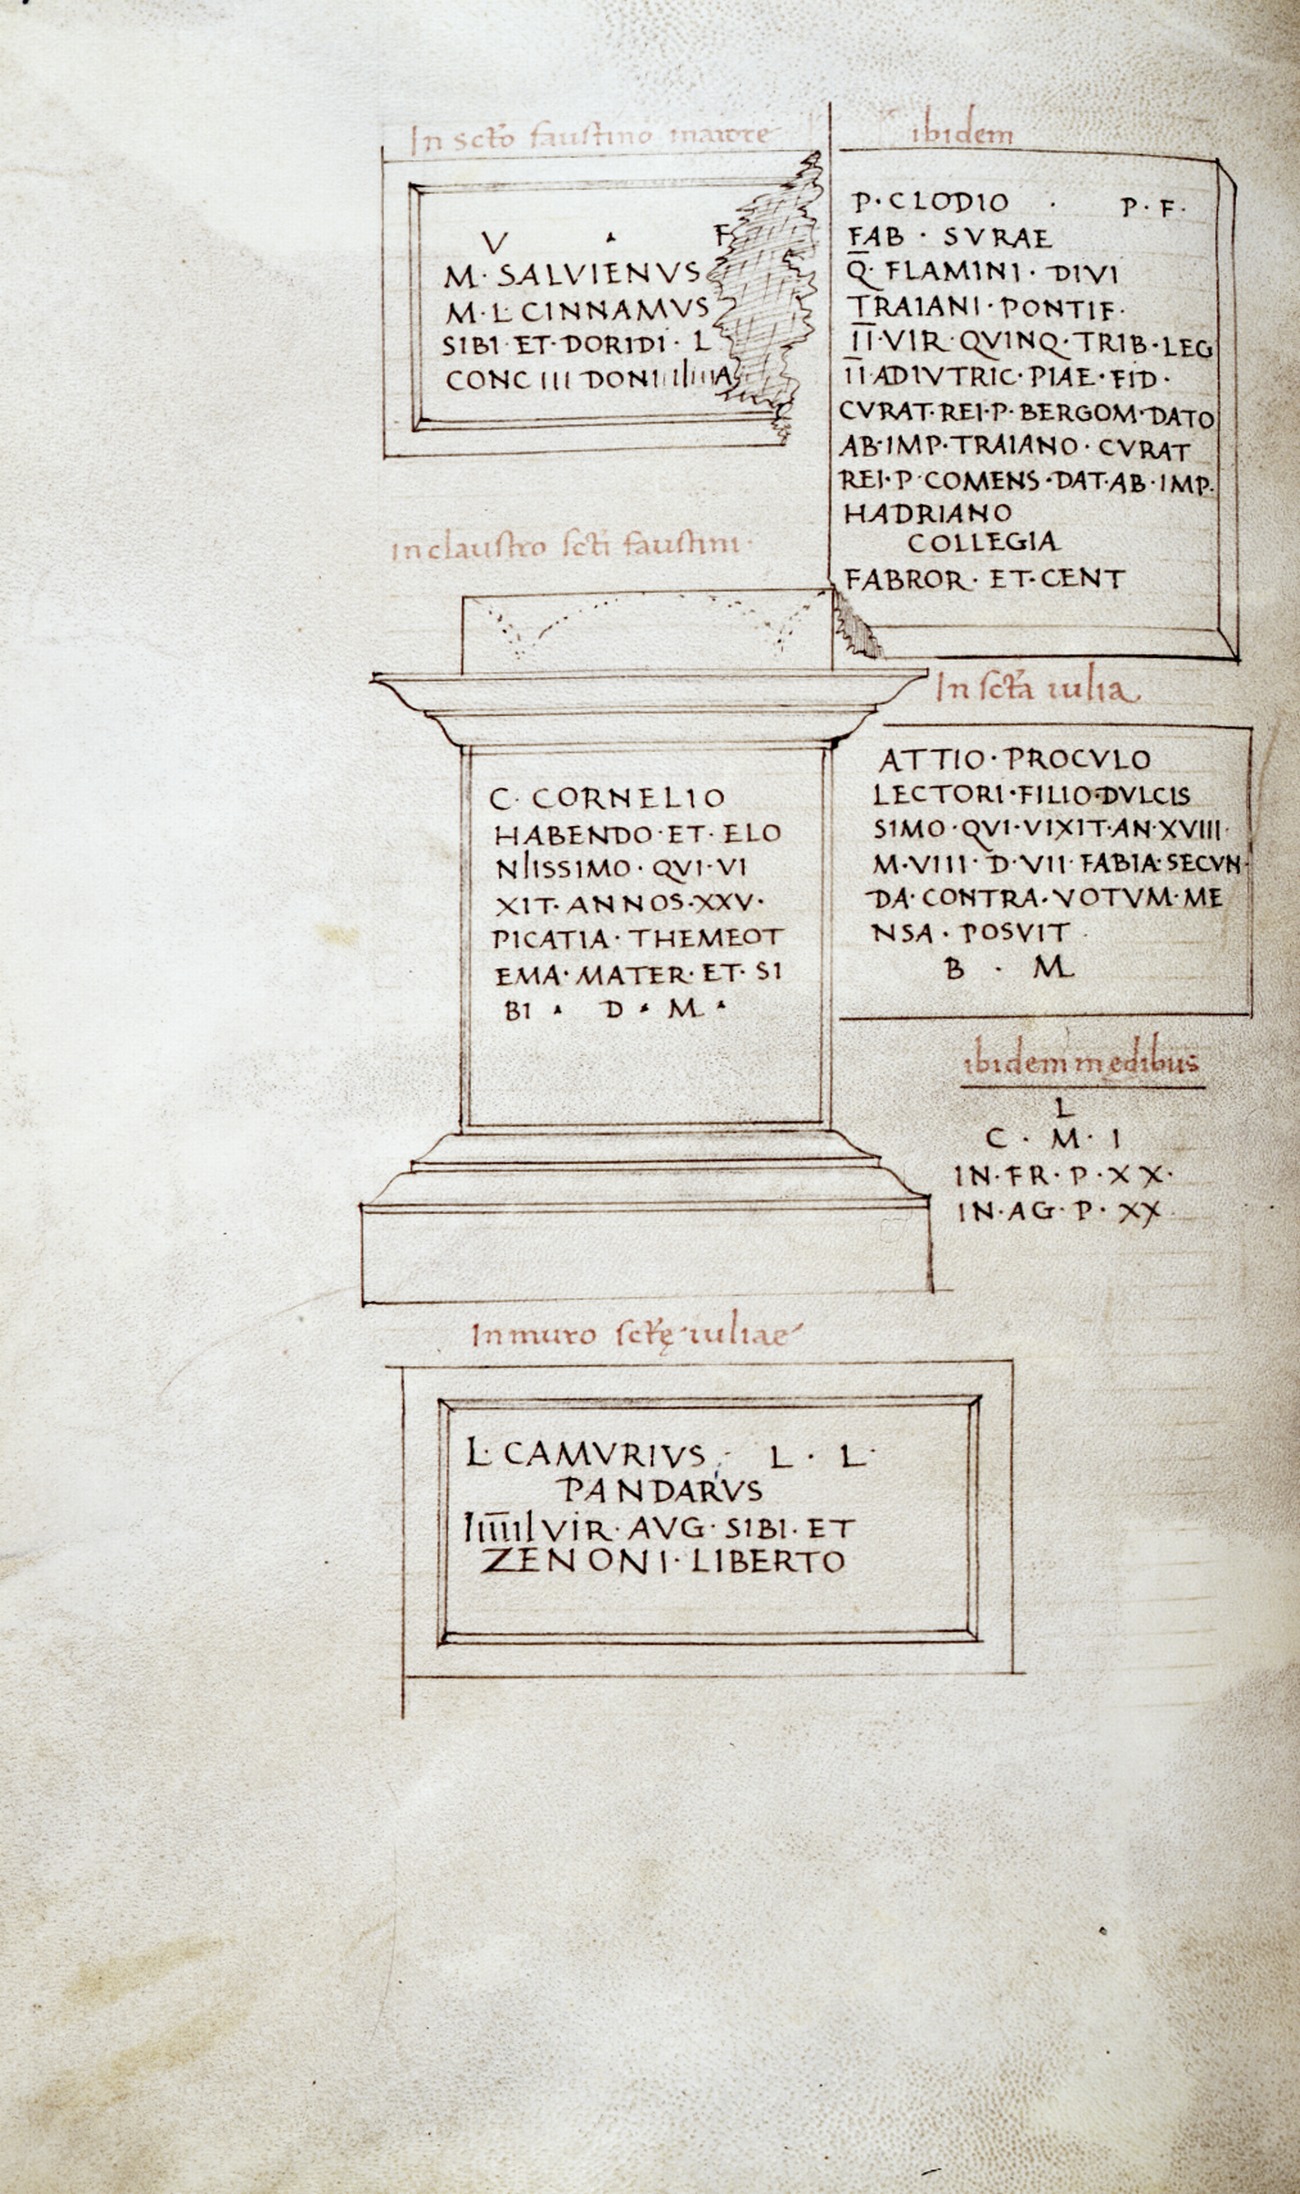 In scto faustino maiore
V · F
M· SALVIENVS
M·L·CINNAMVS
SIBI·ET·DORIDI·L
CONC III DONI
ibidem
P·CLODIO · P·F·
FAB · SVRAE
Q̅· FLAMINI· DIVI
TRAIANI·PONTIF·
I̅I̅·VIR·QVINQ·TRIB·LEG
I̅I̅·ADIVTRIC·PIAE·FID·
CVRAT·REI·P·BERGOM·DATO
AB·IMP·TRAIANO·CVRAT
REI·P·COMENS·DAT·AB·IMP·
HADRIANO
COLLEGIA
FABROR·ET·CENT
In claustro scti faustini·
C· CORNELIO
HABENDO·ET·ELO
NIISSIMO·QVI·VI
XIT·ANNOS·XXV·
PICATIA·THEMEOT
EMA·MATER·ET·SI
BI · D · M ·
In scta iulia
ATTIO·PROCVLO
LECTORI·FILIO·DVLCIS
SIMO·QVI·VIXIT·AN·XVIII·
M·VIII·D·VII·FABIA·SECVN·
DA·CONTRA·VOTVM·ME
NSA·POSVIT·
B · M
ibidem in edibus
L
C · M· I
IN·FR·P·XX·
IN·AG·P·XX·
In muro sctę iuliae
L·CAMVRIVS· L · L·
PANDARVS
IIIIII VIR·AVG·SIBI·ET
ZENONI·LIBERTO